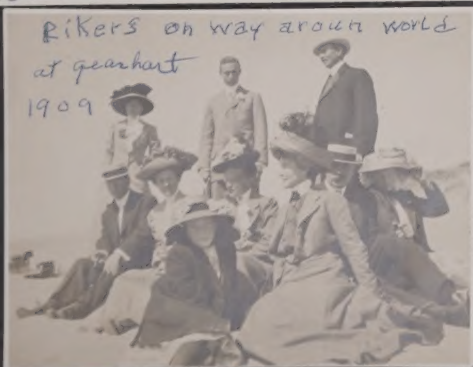 Rikers on way aroun world
at gearhart
1909